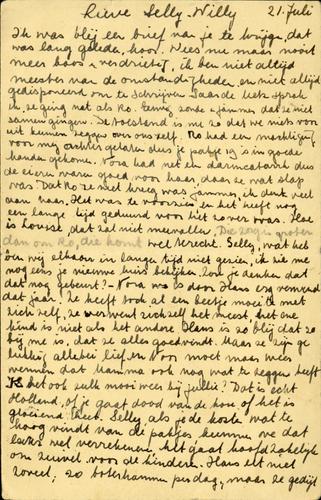 Lieve Selly-Willy 21 Juli
Ik was blij een brief van je te krijgen, dat
was lang geleden, hoor. Wees nu maar nooit
meer boos of verdrietig, ik ben niet altijd
meester van de omstandigheden en niet altijd
gedisponeerd om te schrijven
ze ging net als Ko. zonde en jammer dat ze niet
samen gingen. De toestand is nu zo dat we niets voor
uit kunnen zeggen over ons zelf. Ko had een
voor mij achter gelaten dus je pakje 19 is in goede
handen gekomen. Nora had net een darmcatarrh dus
de eieren waren goed voor haar, daar ze wat slap
was. Dat Ko ze niet kreeg was jammer, ik denk veel
aan haar. Het was te voorzien en het heeft nog
een lange tijd geduurd voor het zover was. Hoe
is dat zal niet meevallen. Die zorg is groter
dan om Ko, die komt wel terecht. Selly, wat heb
ben wij elkaar in lange tijd niet gezien, ik zie me
nog eens je nieuwe huis bekijken. Zou je denken dat
dat nog gebeurt? - Nora was is door Hans erg verwend
dat jaar. Ze heeft toch al een beetje moeite met
zich zelf, ze verwent zich zelf het meest, het ene
kind is niet als het andere Hans is zo blij dat ze
bij me is, dat ze alles goedvindt. Maar ze zijn ge
lukkig allebei lief en Nora moet maar weer
wennen dat mamma ook nog wat te zeggen heeft
Is het ook zulk mooi weer bij jullie? Dat is echt
Holland, of je gaat dood van de kou of het is
gloeiend heet. Selly, als je de kosten wat te
hoog vindt van de pakjes kunnen we dat
later wel verrekenen. Het gaat hoofdzakelijk
om zuivel voor de kinderen. Hans eet niet
zoveel, 20 boterhammen per dag, maar ze gedijt